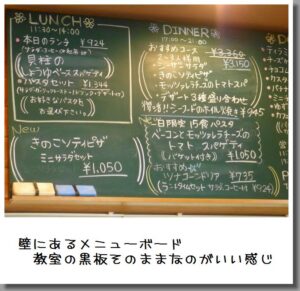 LUNCH
11:30〜14:00
・本日のランチ ¥924
貝柱の
しょうゆベーススパゲティ
・パスタセット ¥1,344
お好きなパスタを
お選び下さい。
New
きのこシティピザ
ミニサラダセット
¥1,050
DINNER
17:00〜21:00
おすすめコース ¥3,360
シーザーサラダ ¥3,150
・きのこシティピザ
・モッツァレラのトマトスパ
・デザート3種盛り合わせ
¥945
一日限定15食パスタ
ベーコンとモッツァレラチーズの
トマトスパゲティ
(バゲット付き) ¥1,050
おすすめ
ツナコーンドリア ¥735
(ランチタイムセット サラダ、コーヒー付 ¥924)
壁にあるメニューボード
教室の黒板そのままなのがいい感じ